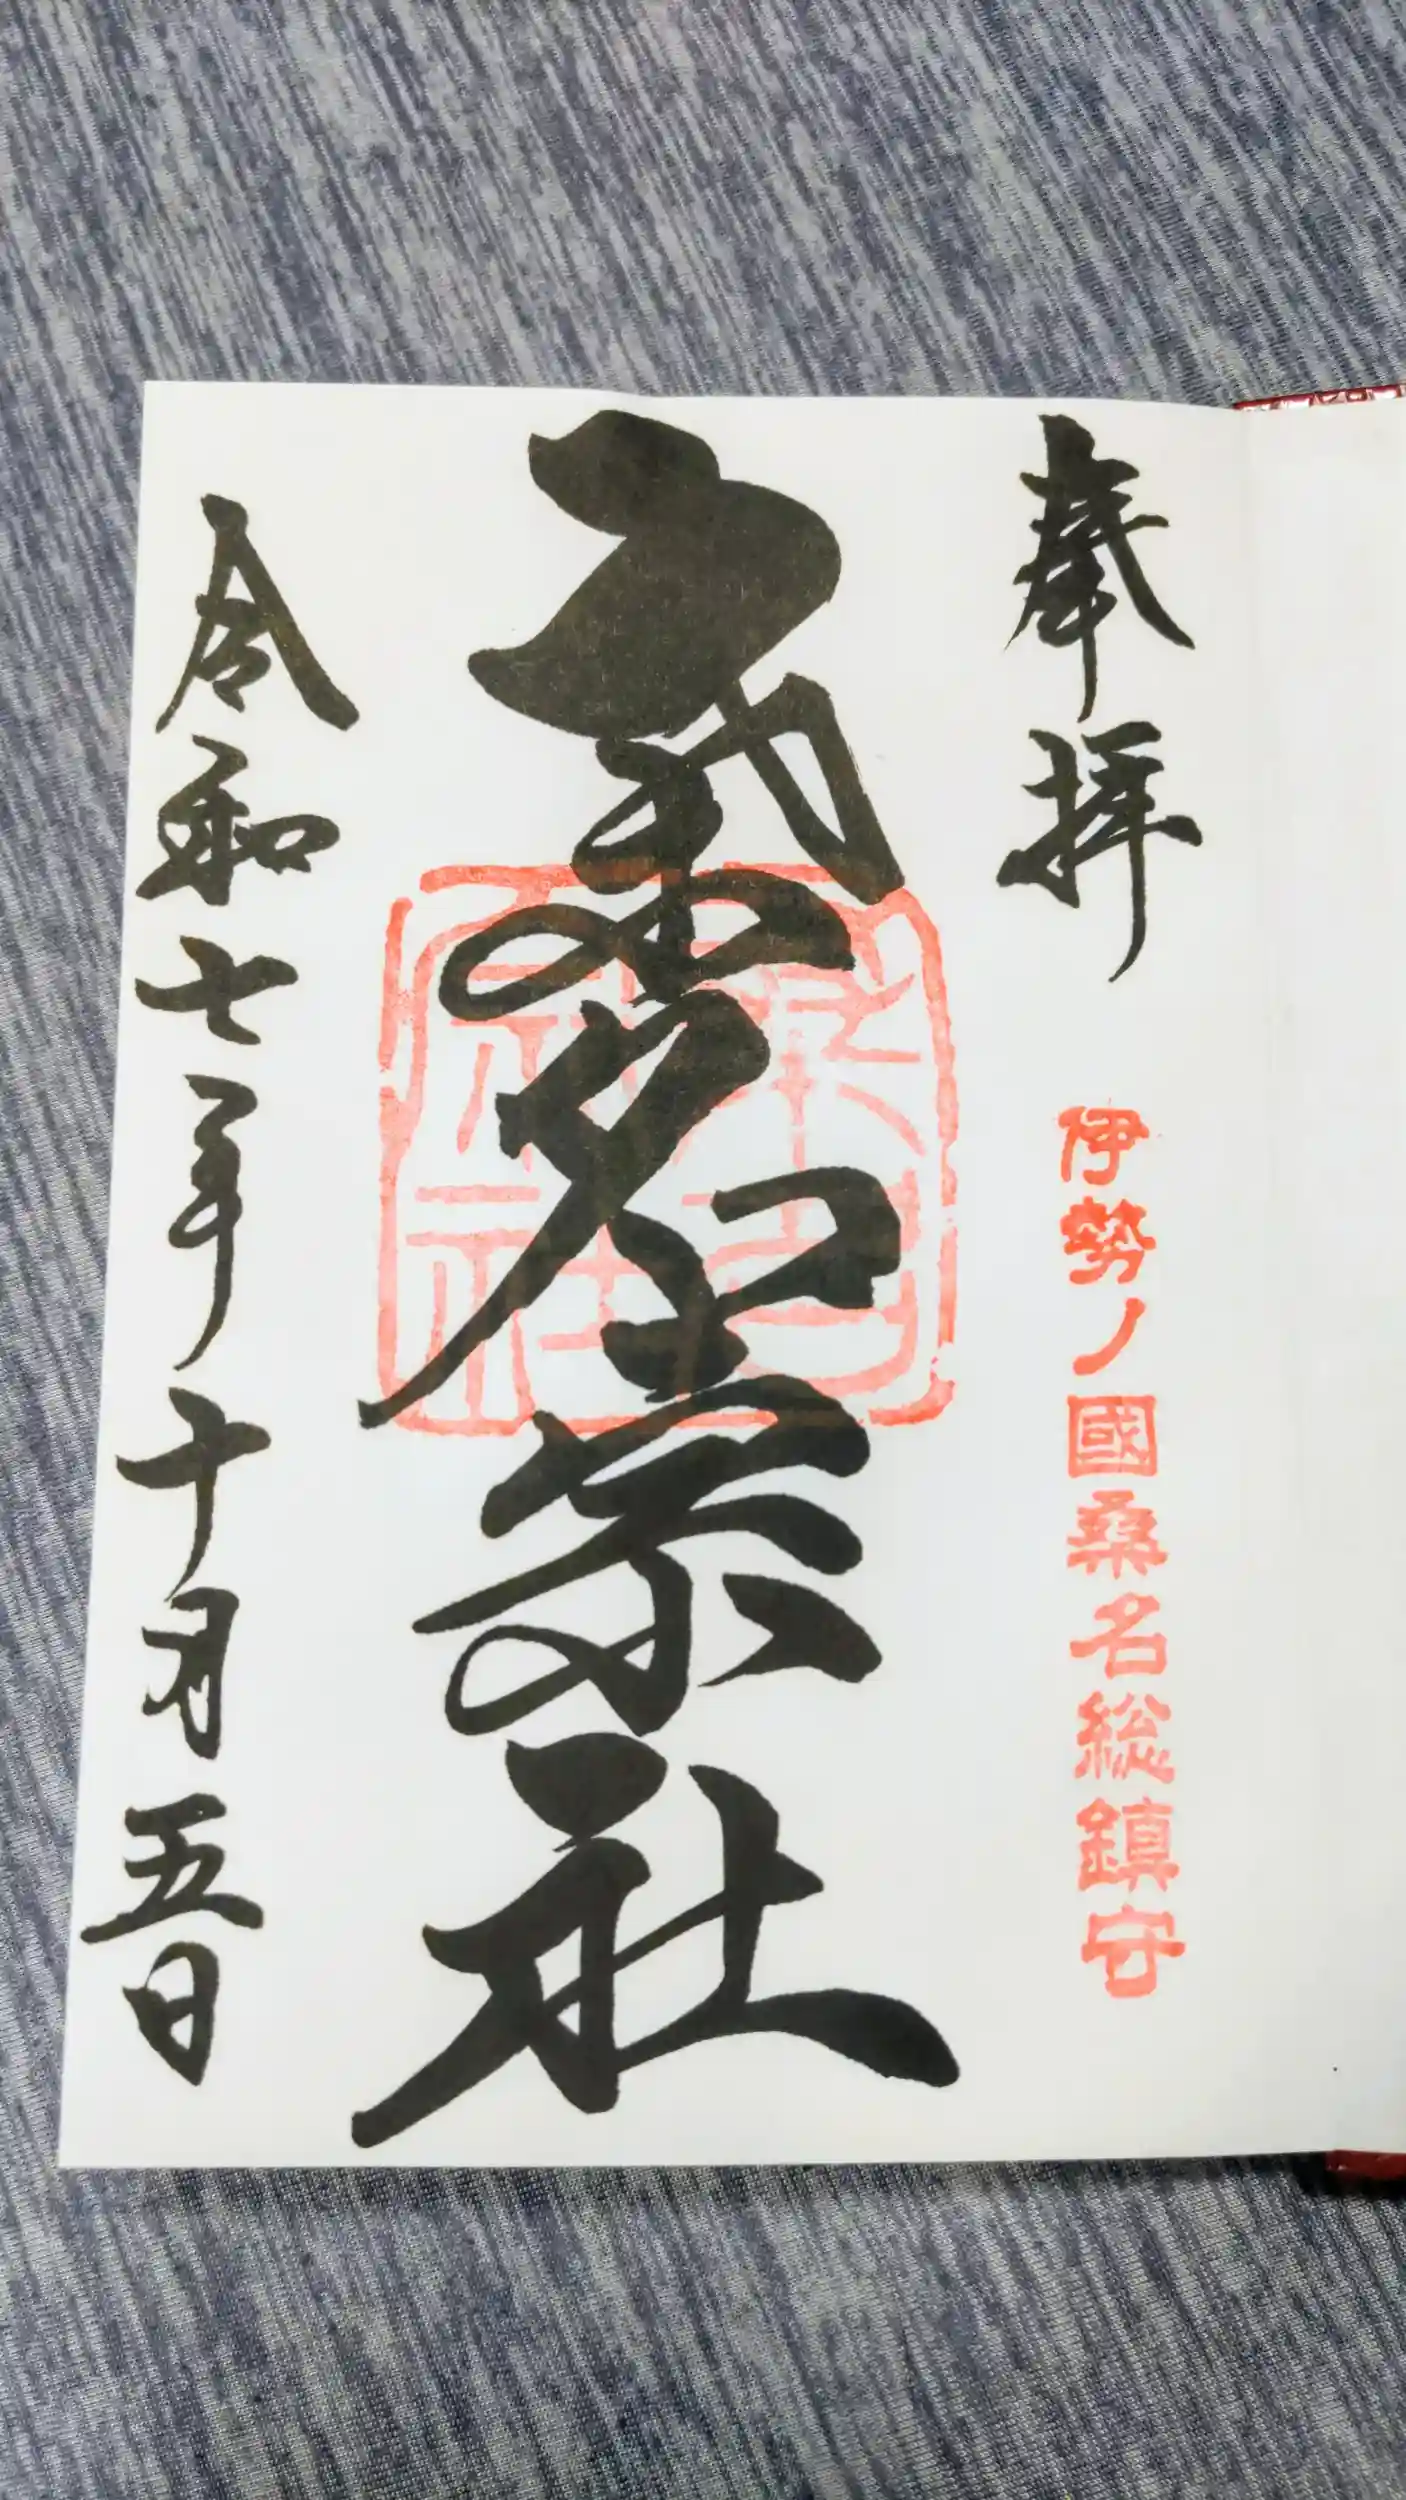 奉拝
伊勢ノ國桑名総鎮守
桑名宗社
桑名
宗社
令和七年十月五日